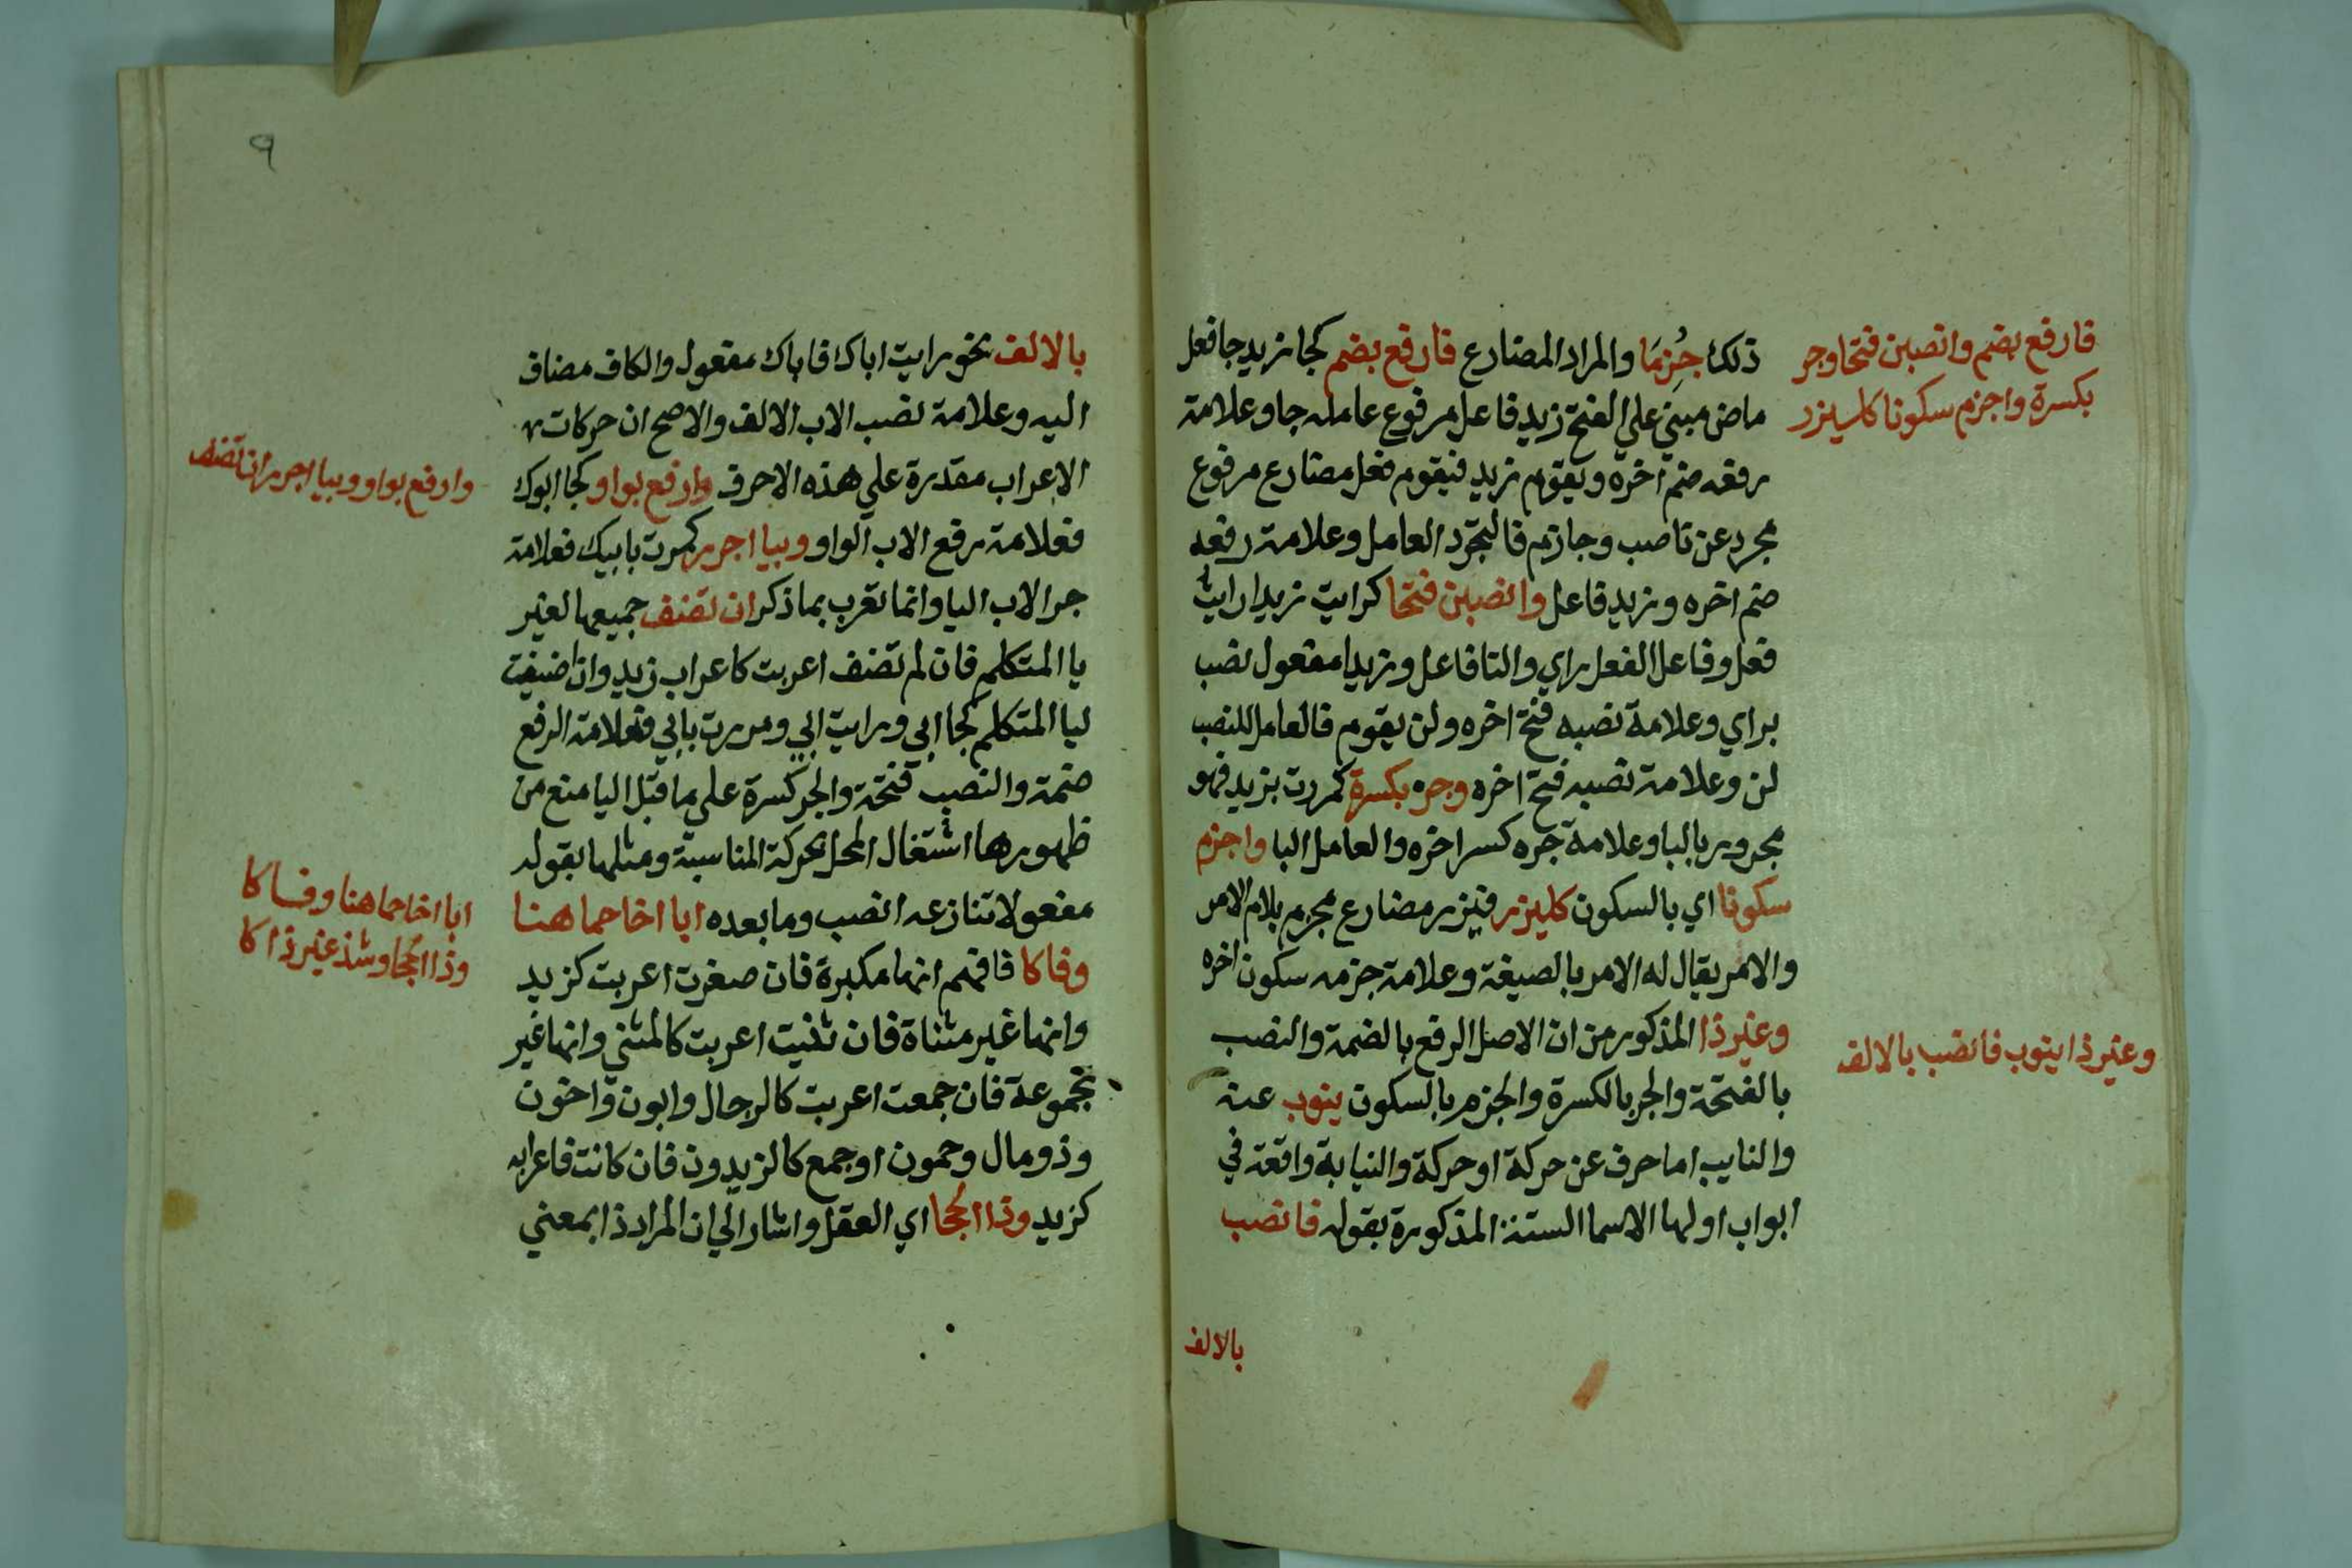 فارفع بضم وانصبن فتحا وجر
بكسرة واجزم سكونا كليزر
ذلك جُزِمَا والمراد المضارع فارفع بضم كجا زيد جا فعل
ماض مبني علي الفتح زيد فاعل مرفوع عامله جا وعلامة
رفعه ضم اخره ويقوم زيد فيقوم فعل مضارع مرفوع
مجرد عن ناصب وجازم فالتجرد العامل وعلامة رفعه
ضم اخره وزيد فاعل وانصبن فتحا كرايت زيدا رايت
فعل وفاعل الفعل راي والتا فاعل وزيدا مفعول نصب
براي وعلامة نصبه فتح اخره ولن يقوم فالعامل للنصب
لن وعلامة نصبه فتح اخره وجره بكسرة كمررت بزيد فهو
مجرور بالبا وعلامة جره كسر اخره والعامل البا واجزم
سكونا اي بالسكون كليزر فيزر مضارع مجزم بلام الامر
والامر يقال له الامر بالصيغة وعلامة جزمه سكون اخره
وغير ذا المذكور من ان الاصل الرفع بالضمة والنصب
بالفتحة والجر بالكسرة والجزم بالسكون ينوب عنه
والنايب اما حرف عن حركة او حركة والنيابة واقعة في
ابواب اولها الاسما الستة المذكورة بقوله فانصب
وغير ذا ينوب فانصب بالالف
بالالف
٩
بالالف نحو رايت اباك فاباك مفعول والكاف مضاف
اليه وعلامة نصب الاب الالف والاصح ان حركات
الاعراب مقدرة علي هذه الاحرف وارفع بواو كجا ابوك
فعلامة رفع الاب الواو وبيا اجرر كمررت بابيك فعلامة
جر الاب اليا وانما تعرب بما ذكر ان تضف جميعها لغير
يا المتكلم فان لم تضف اعربت كاعراب زيد وان اضيفت
ليا المتكلم كجا ابي ورايت ابي ومررت بابي فعلامة الرفع
ضمة والنصب فتحة والجر كسرة علي ما قبل اليا منع من
ظهورها اشتغال المحل بحركة المناسبة ومثلها بقوله
مفعولا تنازعه انصب وما بعده ابا اخا حما هنا
وفا كا فافهم انها مكبرة فان صغرت اعربت كزيد
وانها غير مثناة فان ثنيت اعربت كالمثني وانها غير
مجموعة فان جمعت اعربت كالرجال وابون واخون
وذو مال وحمون اوجمع كالزيدون فان كانت فاعرابه
كزيد وذا الحجا اي العقل واشار الي ان المراد ذا بمعني
وارفع بواو وبيا اجرر ان تضف
ابا اخا حما هنا وفا كا
وذا الحجا وشذ غير ذا كا